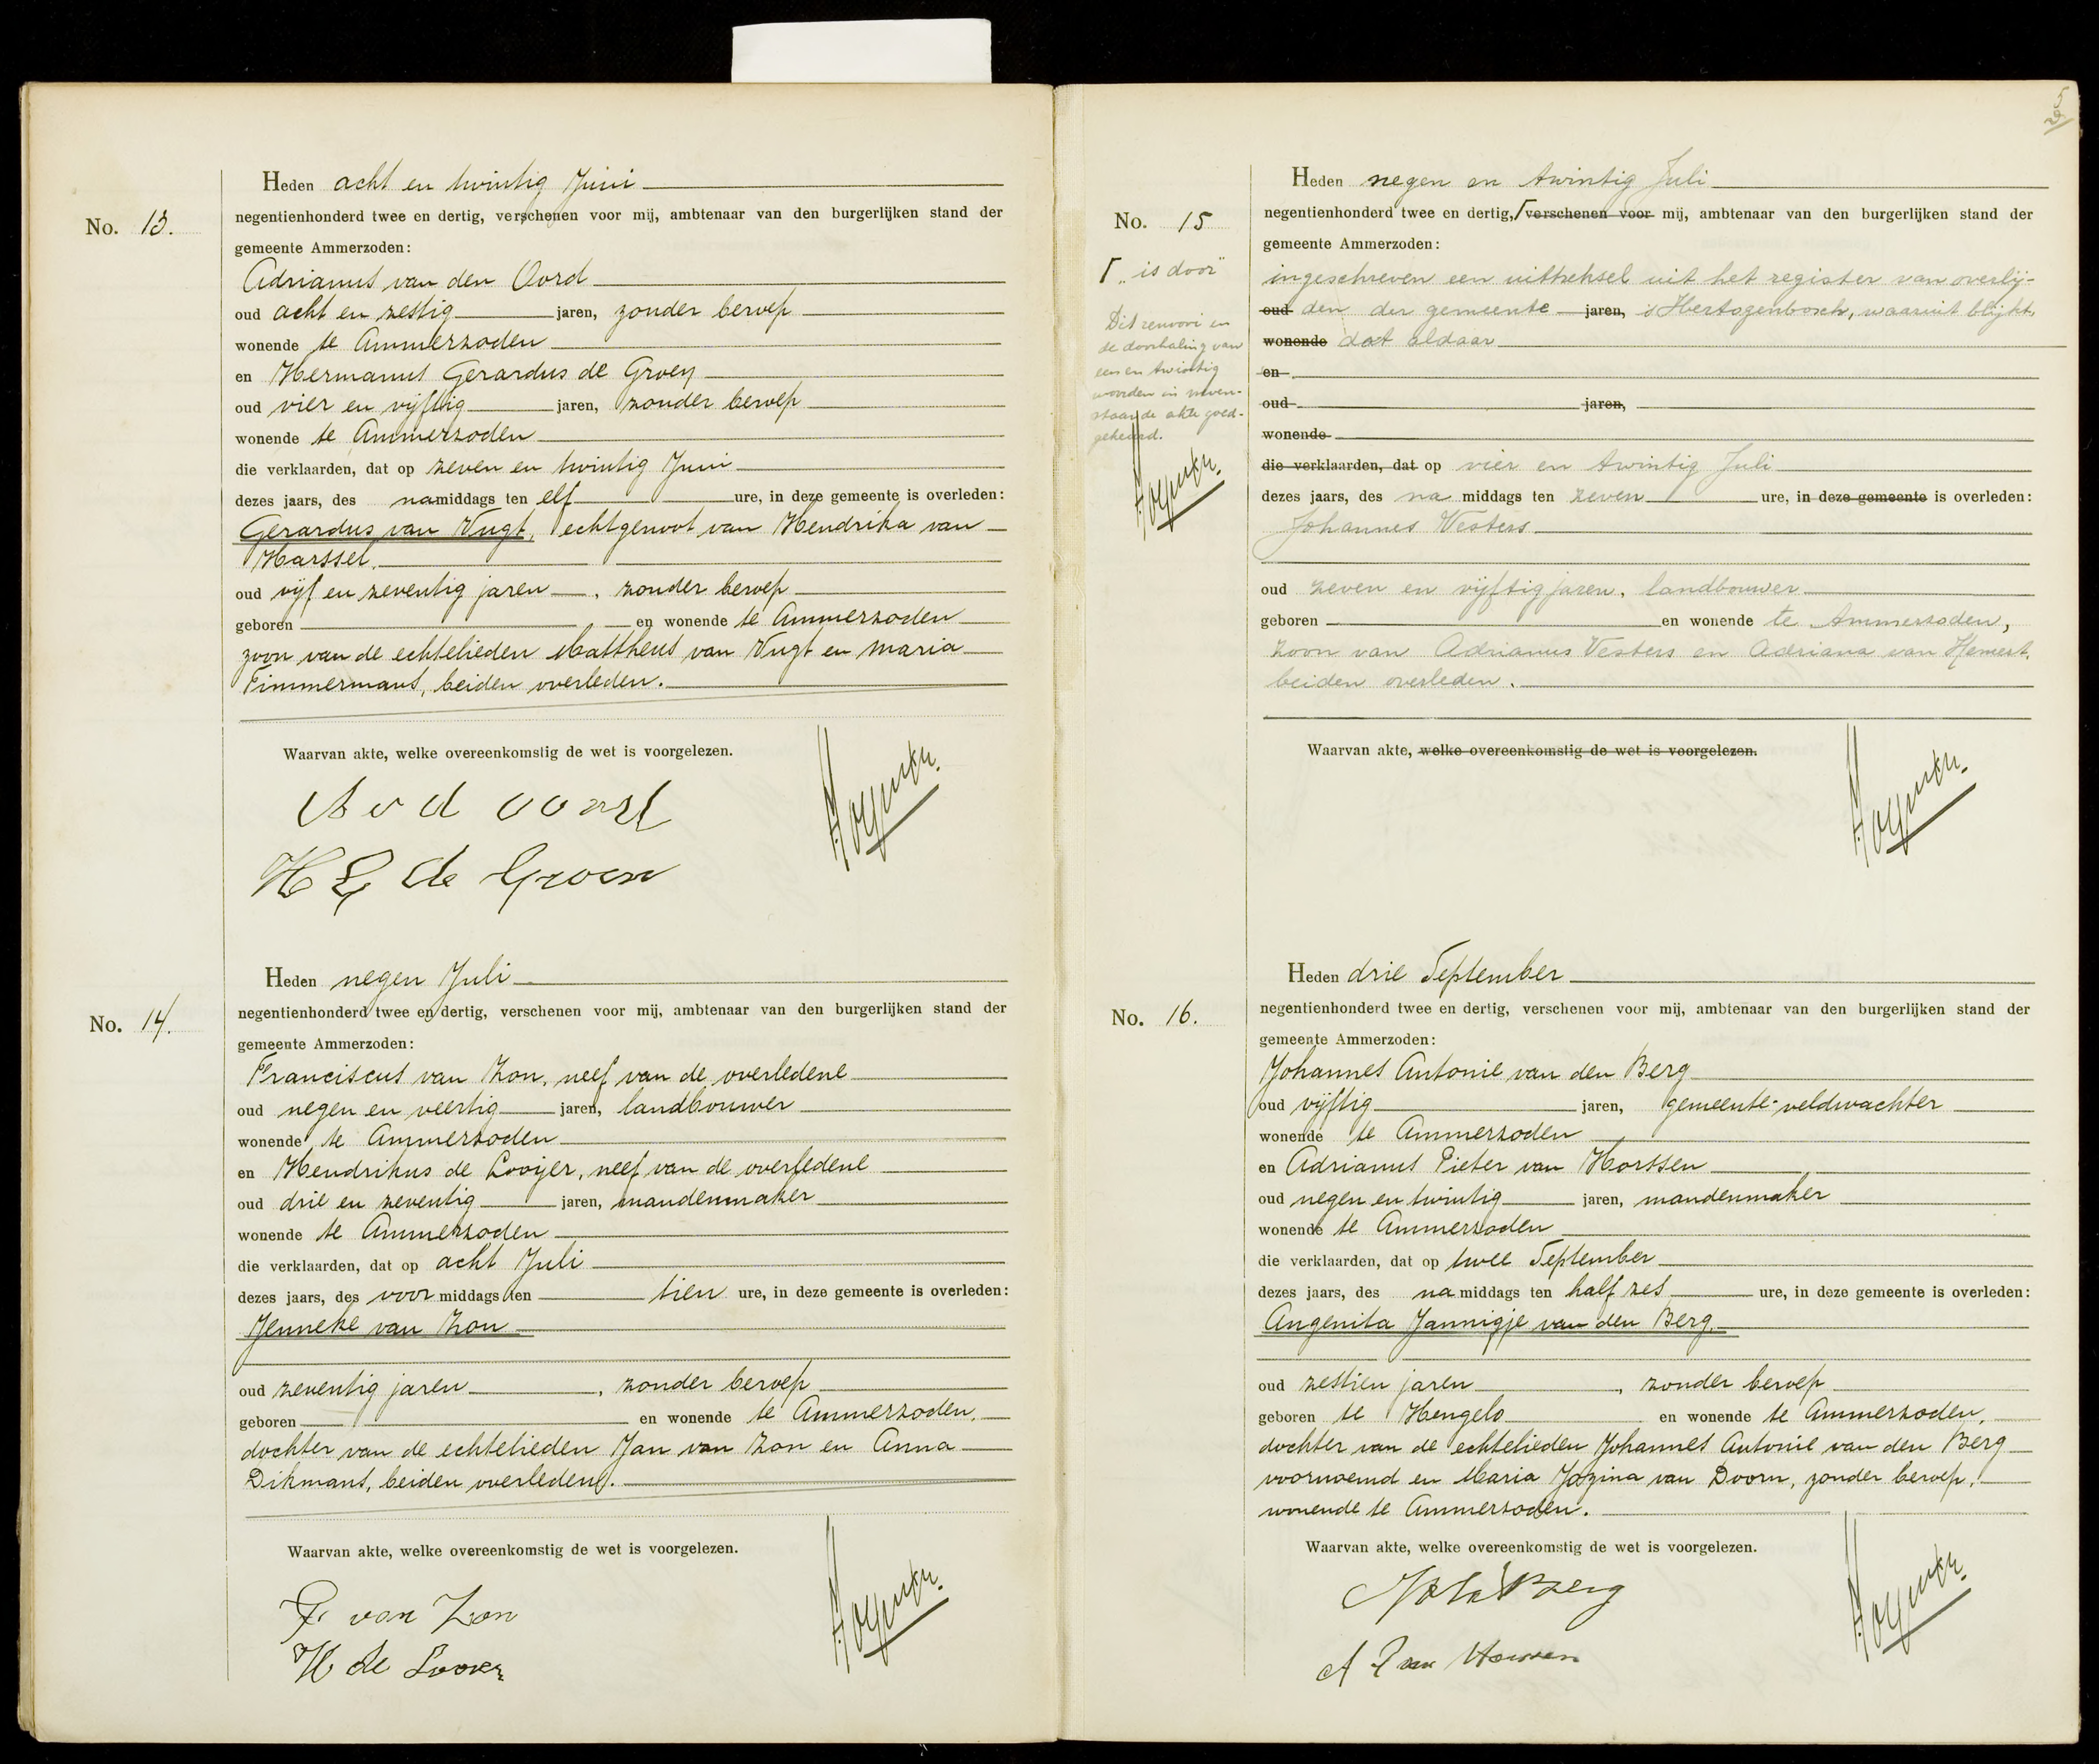 Heden acht en twintig Juni
No. 13.
negentienhonderd twee en dertig, verschenen voor mij, ambtenaar van den burgerlijken stand der
gemeente Ammerzoden:
Adrianus van den Oord
oud acht en zestig jaren, zonder beroep
wonende te Ammerzoden
en Hermanus Gerardus de Groen
oud vier en vijftig jaren, zonder beroep
wonende te Ammerzoden
die verklaarden, dat op zeven en twintig Juni
dezes jaars, des namiddags ten elf ure, in deze gemeente is overleden:
Gerardus van Vugt, echtgenoot van Hendrika van
Harssel.
oud vijf en zeventig jaren, zonder beroep
geboren en wonende te Ammerzoden
zoon van de echtelieden Mattheus van Vugt en Maria
Timmermans, beiden overleden.
Waarvan akte, welke overeenkomstig de wet is voorgelezen.
A v d oord
H G de Groen
Heden negen Juli
No. 14.
negentienhonderd twee en dertig, verschenen voor mij, ambtenaar van den burgerlijken stand der
gemeente Ammerzoden:
Franciscus van Zon, neef van de overledene
oud negen en veertig jaren, landbouwer
wonende te Ammerzoden
en Hendrikus de Looijer, neef van de overledene
oud drie en zeventig jaren, mandenmaker
wonende te Ammerzoden
die verklaarden, dat op acht Juli
dezes jaars, des voor middags ten tien ure, in deze gemeente is overleden:
Jenneke van Zon
oud zeventig jaren, zonder beroep
geboren en wonende te Ammerzoden,
dochter van de echtelieden Jan van Zon en Anna
Dikmans, beiden overleden.
Waarvan akte, welke overeenkomstig de wet is voorgelezen.
F. van Zon
H de Looier
5
Heden negen en twintig Juli
No. 15
negentienhonderd twee en dertig, verschenen voor mij, ambtenaar van den burgerlijken stand der
gemeente Ammerzoden:
Γ „is door"
ingeschreven een uittreksel uit het register van overlij-
oud den der gemeente jaren, 's Hertogenbosch, waaruit blijkt,
wonende dat aldaar
en
oud jaren,
wonende
Dit renvooi en
de doorhaling van
een en twintig
woorden in neven-
staande akte goed-
gekeurd.
die verklaarden, dat op vier en twintig Juli
dezes jaars, des na middags ten zeven ure, in deze gemeente is overleden:
Johannes Vesters
oud zeven en vijftig jaren, landbouwer
geboren en wonende te Ammerzoden,
zoon van Adrianus Vesters en Adriana van Hemert,
beiden overleden.
Waarvan akte, welke overeenkomstig de wet is voorgelezen.
Heden drie September
No. 16.
negentienhonderd twee en dertig, verschenen voor mij, ambtenaar van den burgerlijken stand der
gemeente Ammerzoden:
Johannes Antonie van den Berg
oud vijftig jaren, gemeente-veldwachter
wonende te Ammerzoden
en Adrianus Pieter van Horssen
oud negen en twintig jaren, mandenmaker
wonende te Ammerzoden
die verklaarden, dat op twee September
dezes jaars, des na middags ten half zes ure, in deze gemeente is overleden:
Angenita Jannigje van den Berg,
oud zestien jaren, zonder beroep
geboren te Hengelo en wonende te Ammerzoden,
dochter van de echtelieden Johannes Antonie van den Berg
voornoemd en Maria Jozina van Doorn, zonder beroep,
wonende te Ammerzoden.
Waarvan akte, welke overeenkomstig de wet is voorgelezen.
A P van Horssen